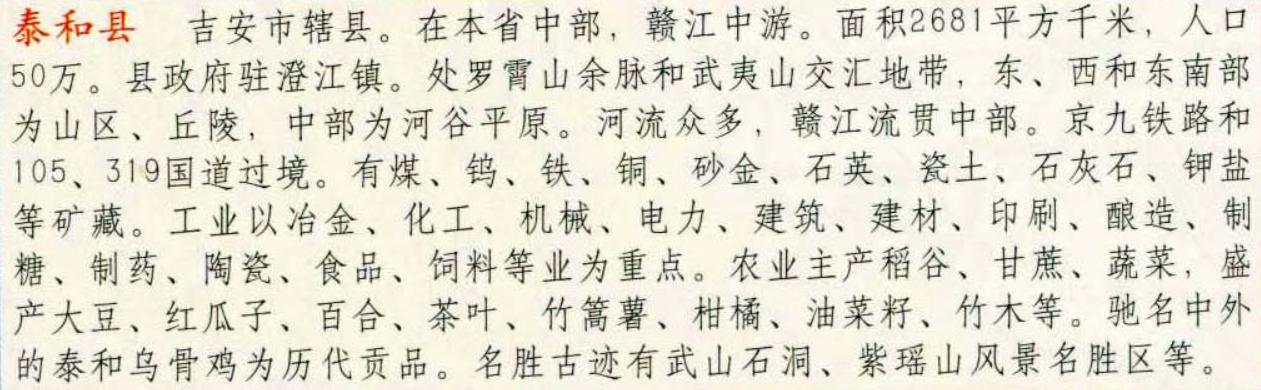 泰和县 吉安市辖县。在本省中部，赣江中游。面积2681平方千米，人口
50万。县政府驻澄江镇。处罗霄山余脉和武夷山交汇地带，东、西和东南部
为山区、丘陵，中部为河谷平原。河流众多，赣江流贯中部。京九铁路和
105、319国道过境。有煤、钨、铁、铜、砂金、石英、瓷土、石灰石、钾盐
等矿藏。工业以冶金、化工、机械、电力、建筑、建材、印刷、酿造、制
糖、制药、陶瓷、食品、饲料等业为重点。农业主产稻谷、甘蔗、蔬菜，盛
产大豆、红瓜子、百合、茶叶、竹篙薯、柑橘、油菜籽、竹木等。驰名中外
的泰和乌骨鸡为历代贡品。名胜古迹有武山石洞、紫瑶山风景名胜区等。